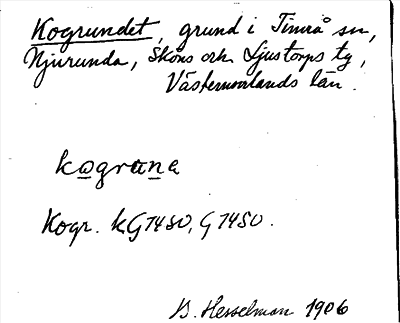 Kogrundet, grund i Timrå sn,
Njurunda, Sköns och Ljustorps tg,
Västernorrlands län.
kogruna
Kogr. kG1450, G1450.
B. Hesselman 1906